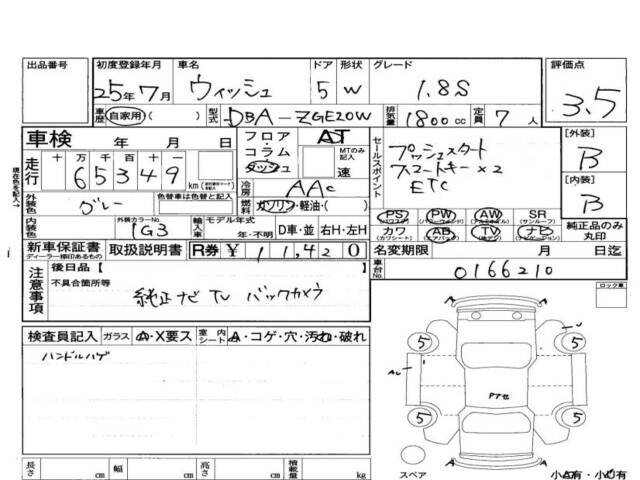 出品番号 初度登録年月 車名 ドア 形状 グレード 評価点
25年7月 ウィッシュ 5 W 1.8S 3.5
車歴 自家用・( ) 型式 DBA-ZGE20W 排気量 1800cc 定員 7人
車検 年 月 日 フロア・コラム・ダッシュ AT MTのみ記入 速 セールスポイント プッシュスタート [外装]
スマートキー×2 B
ETC [内装]
走行 十 万 千 百 十 一 B
65349 km
冷房 AAC
外装色 グレー 色替車は色替と記入 燃料 ガソリン・軽油・( ) PS PW AW SR
(サンルーフ)
内装色 外装カラーNo. 1G3 輸入車 モデル年式 年・不明 D車・並 右H・左H カワ AB TV ナビ 純正品のみ丸印
(カワシート) (エアバッグ)
新車保証書 取扱説明書 R券 ¥11,420 名変期限 月 日迄
ディーラー様印あるもの
車台No. 0166210
注意事項 後日品【 】 ロック車
不具合箇所等
純正ナビTV バックカメラ
検査員記入 ガラス A・X要ス 室内シート A・コゲ・穴・汚れ・破れ
ハンドルハゲ
5 5
PTセ
5 5
スペア
長さ cm 幅 cm 高さ cm 積載量 kg 小A有・小U有
現在色を記入→